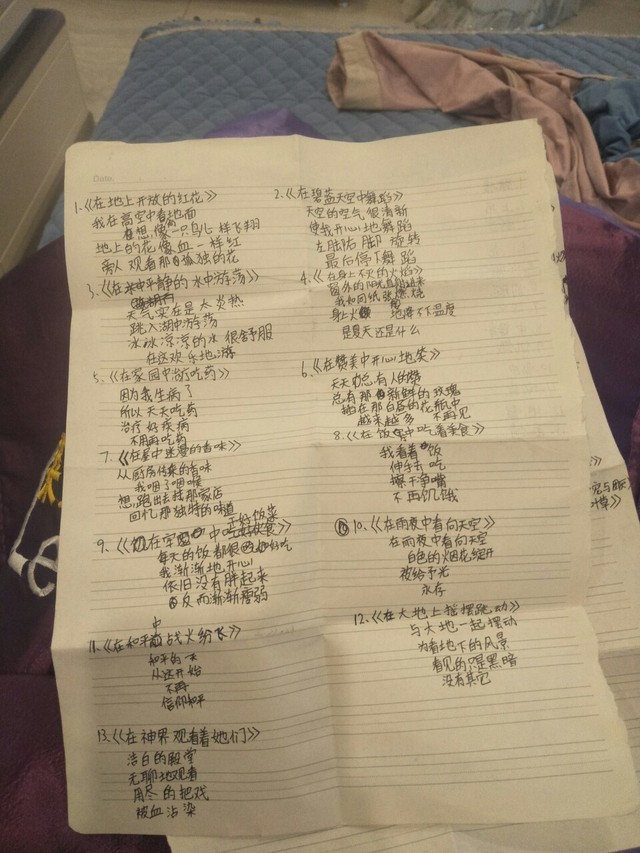 Date.
1.《在地上开放的红花》
我在高空中看地面
在想,像一只鸟儿一样飞翔
地上的花像血一样红
旁人观看那孤独的花
2.《在碧蓝天空中舞蹈》
天空的空气很清新
使我开心地舞蹈
左脚右脚旋转
最后停下舞蹈
3.《在平静的水中游荡》
天气实在是太炎热
跳入湖中游荡
冰冰凉凉的水很舒服
在这欢乐地游
4.《在身上不灭的火焰》
窗外的阳光直射进来
我如同纸张燃烧
身上火 地降不下温度
是夏天还是什么
5.《在家园中治疗吃药》
因为我生病了
所以天天吃药
治疗好疾病
不用再吃药
6.《在赞美中开心地笑》
天天都总有人的赞
总有那新鲜的玫瑰
插在那白昼的花瓶中
越来越多 不再见
7.《在星中迷漫的香味》
从厨房传来的香味
我咽了咽喉
想跑出去找那家店
回忆那独特的味道
8.《在饭中吃着美食》
我看着饭
伸手去吃
擦干净嘴
不再饥饿
9.《在 中吃好饭菜》
每天的饭都很 好吃
我渐渐地开心
依旧没有胖起来
反而渐渐瘦弱
10.《在雨夜中看向天空》
在雨夜中看向天空
白色的烟花绽开
被给予光
永存
11.《在和平中战火纷飞》
和平的一天
从这开始
不再
信仰和平
12.《在大地上摇摆跳动》
与大地一起摆动
为看地下的风景
看见的只是黑暗
没有其它
13.《在神界观看着她们》
洁白的殿堂
无聊地观看
用尽的把戏
被血沾染